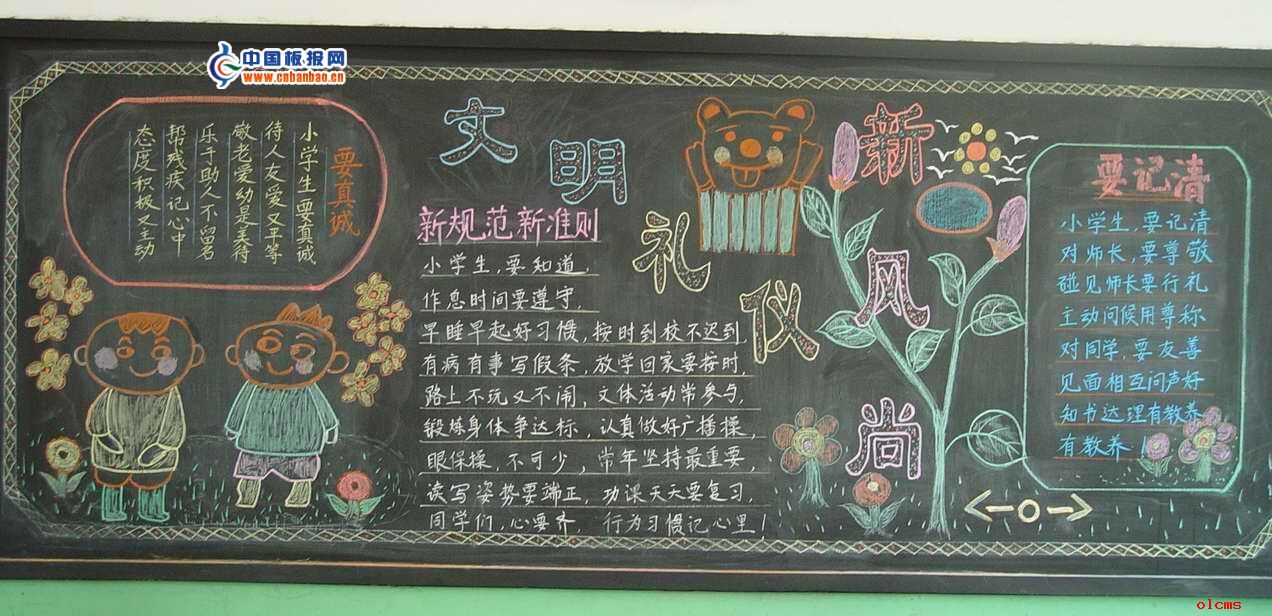 中国板报网
www.cnbanbao.cn
文明礼仪新风尚
要真诚
小学生要真诚
待人友爱又平等
敬老爱幼是美待
乐于助人不留名
帮残疾记心中
态度积极又主动
新规范新准则
小学生,要知道
作息时间要遵守,
早睡早起好习惯,按时到校不迟到
有病有事写假条,放学回家要按时,
路上不玩又不闹,文体活动常参与,
锻炼身体争达标,认真做好广播操,
眼保操,不可少,常年坚持最重要,
读写姿势要端正,功课天天要复习,
同学们,心要齐,行为习惯记心里!
要记清
小学生,要记清
对师长,要尊敬
碰见师长要行礼
主动问候用尊称
对同学,要友善
见面相互问声好
知书达理有教养
有教养!
olcms